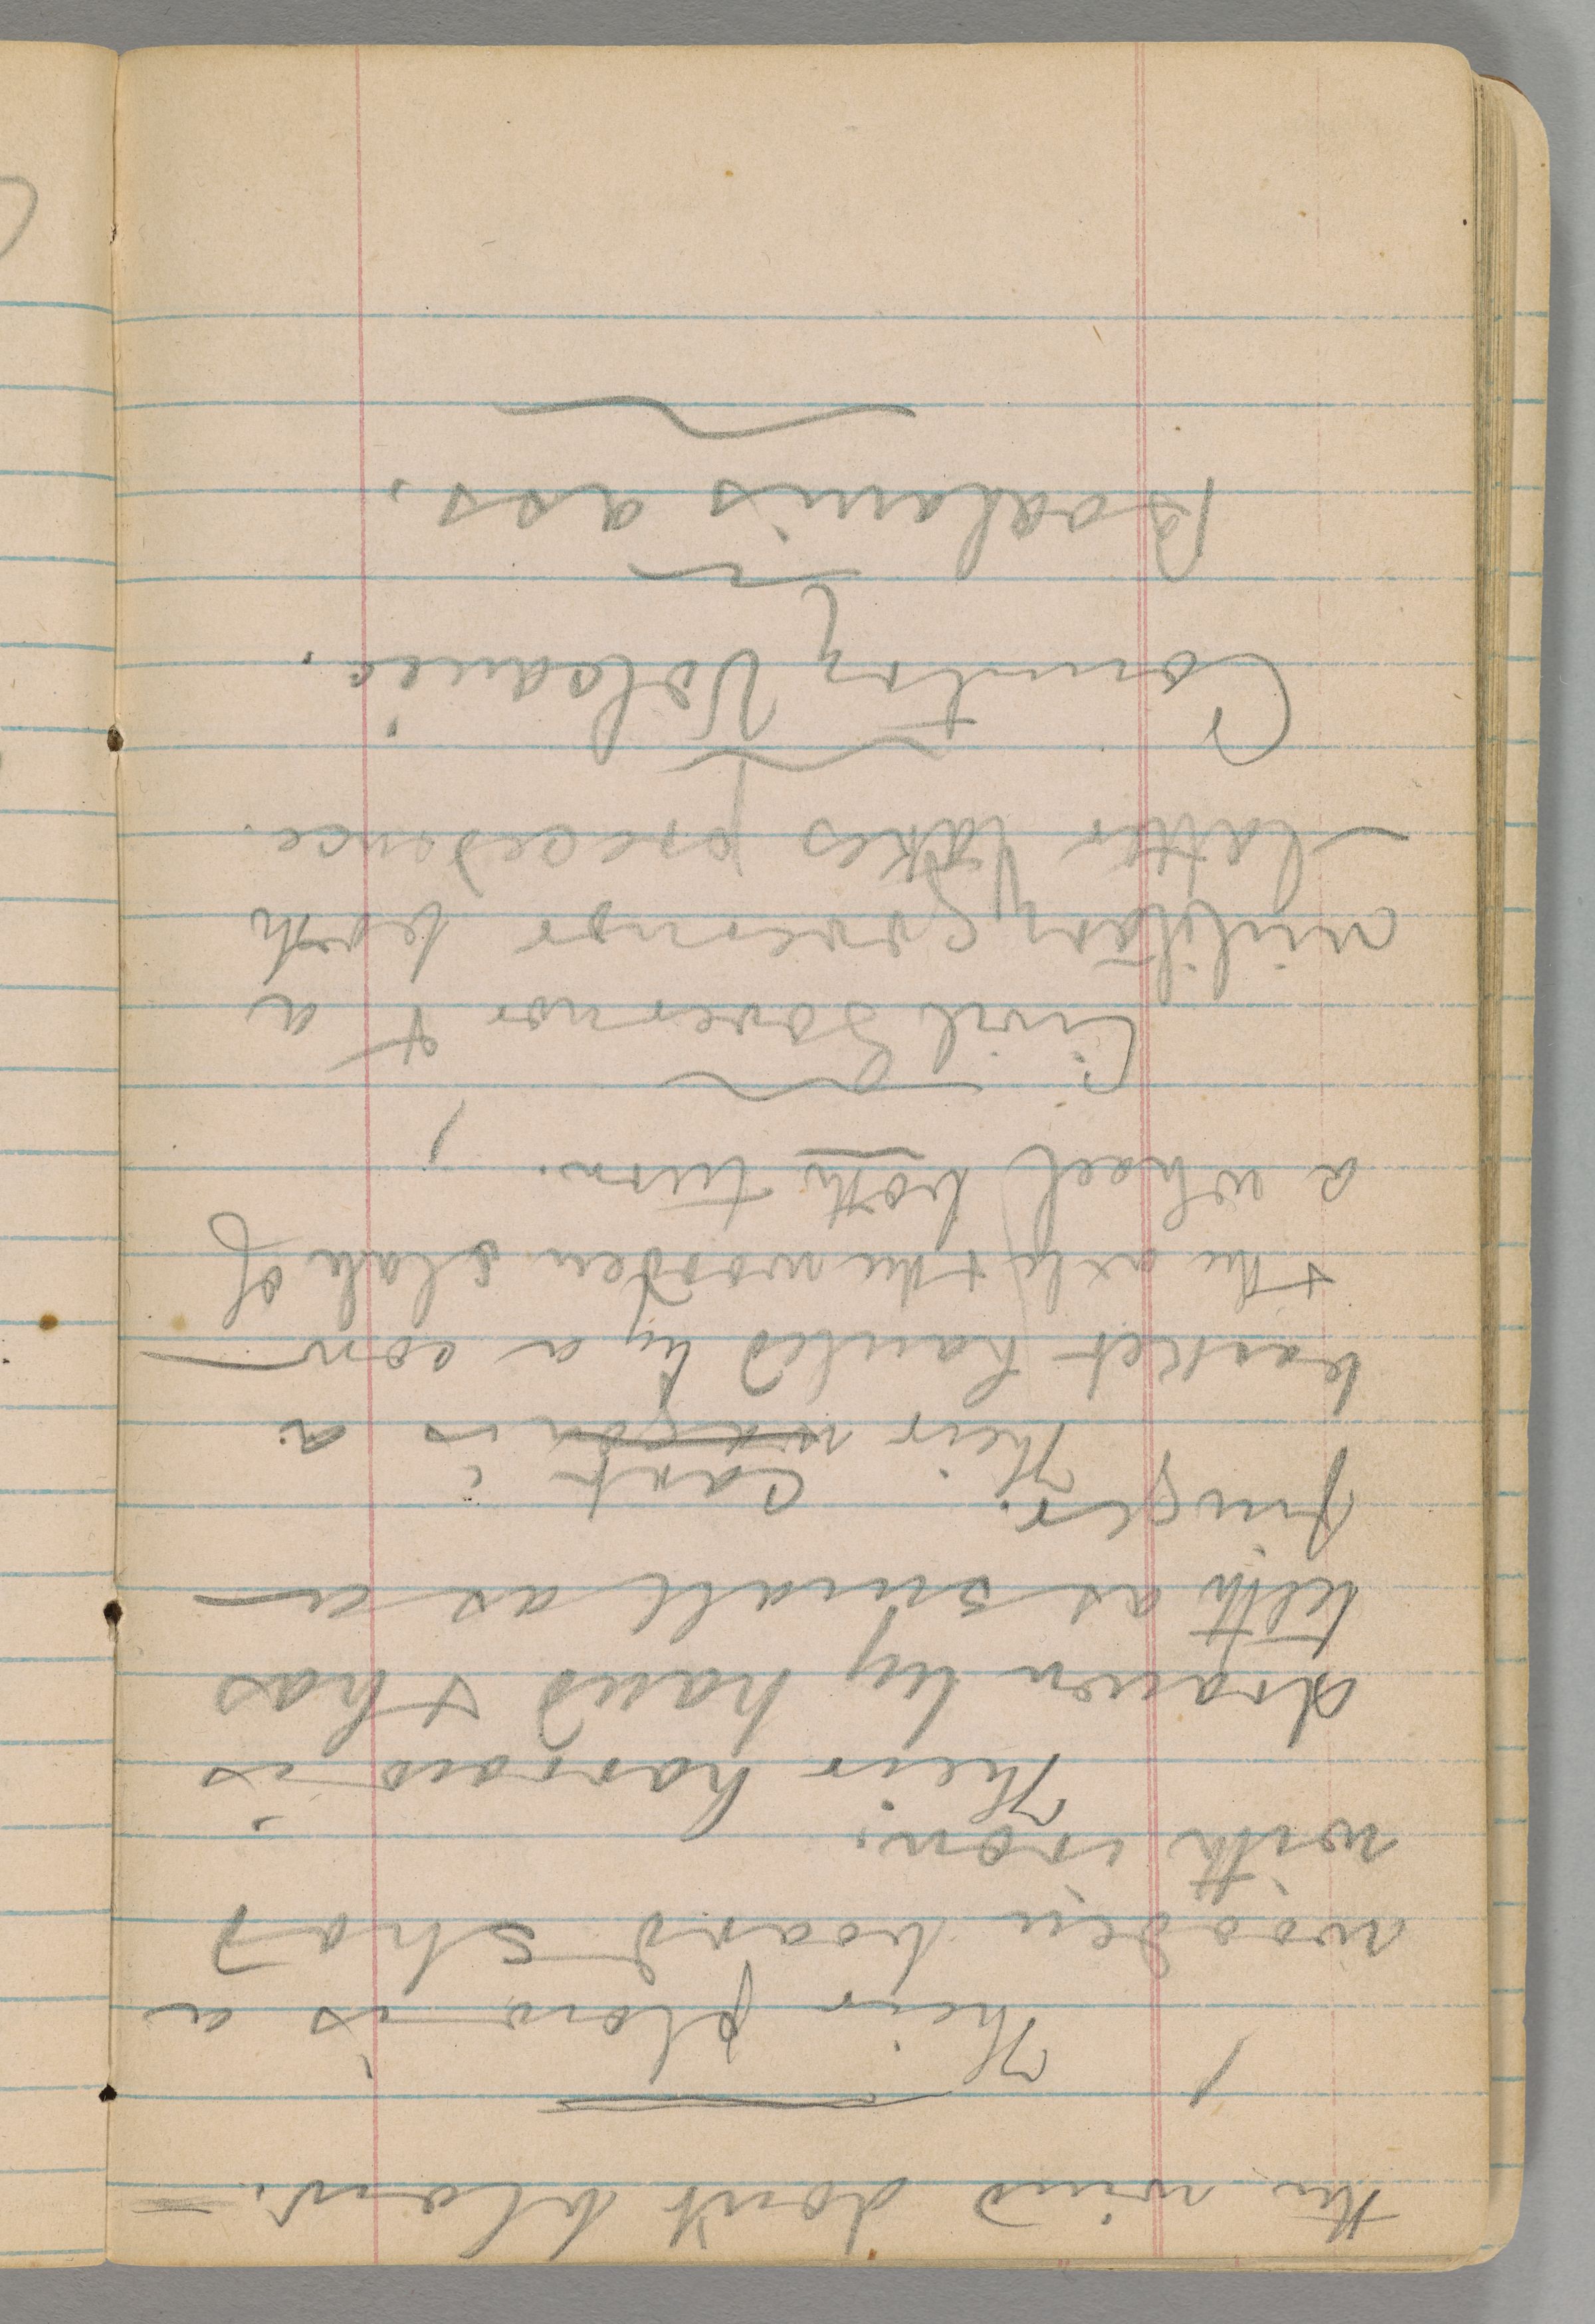 the wind don't blow. =
Their plow is a
wooden board shod
with iron.
Their harrow is
drawn by hand & has
teeth as small as a
finger. cart is
Their wagon is a
basket hauled by a cow
& the axle & the wooden slab of
a wheel both turn.
Civil Governor & a
military Governor both
— latter takes precedence.
Country Volcanic.
Boalam's ass.